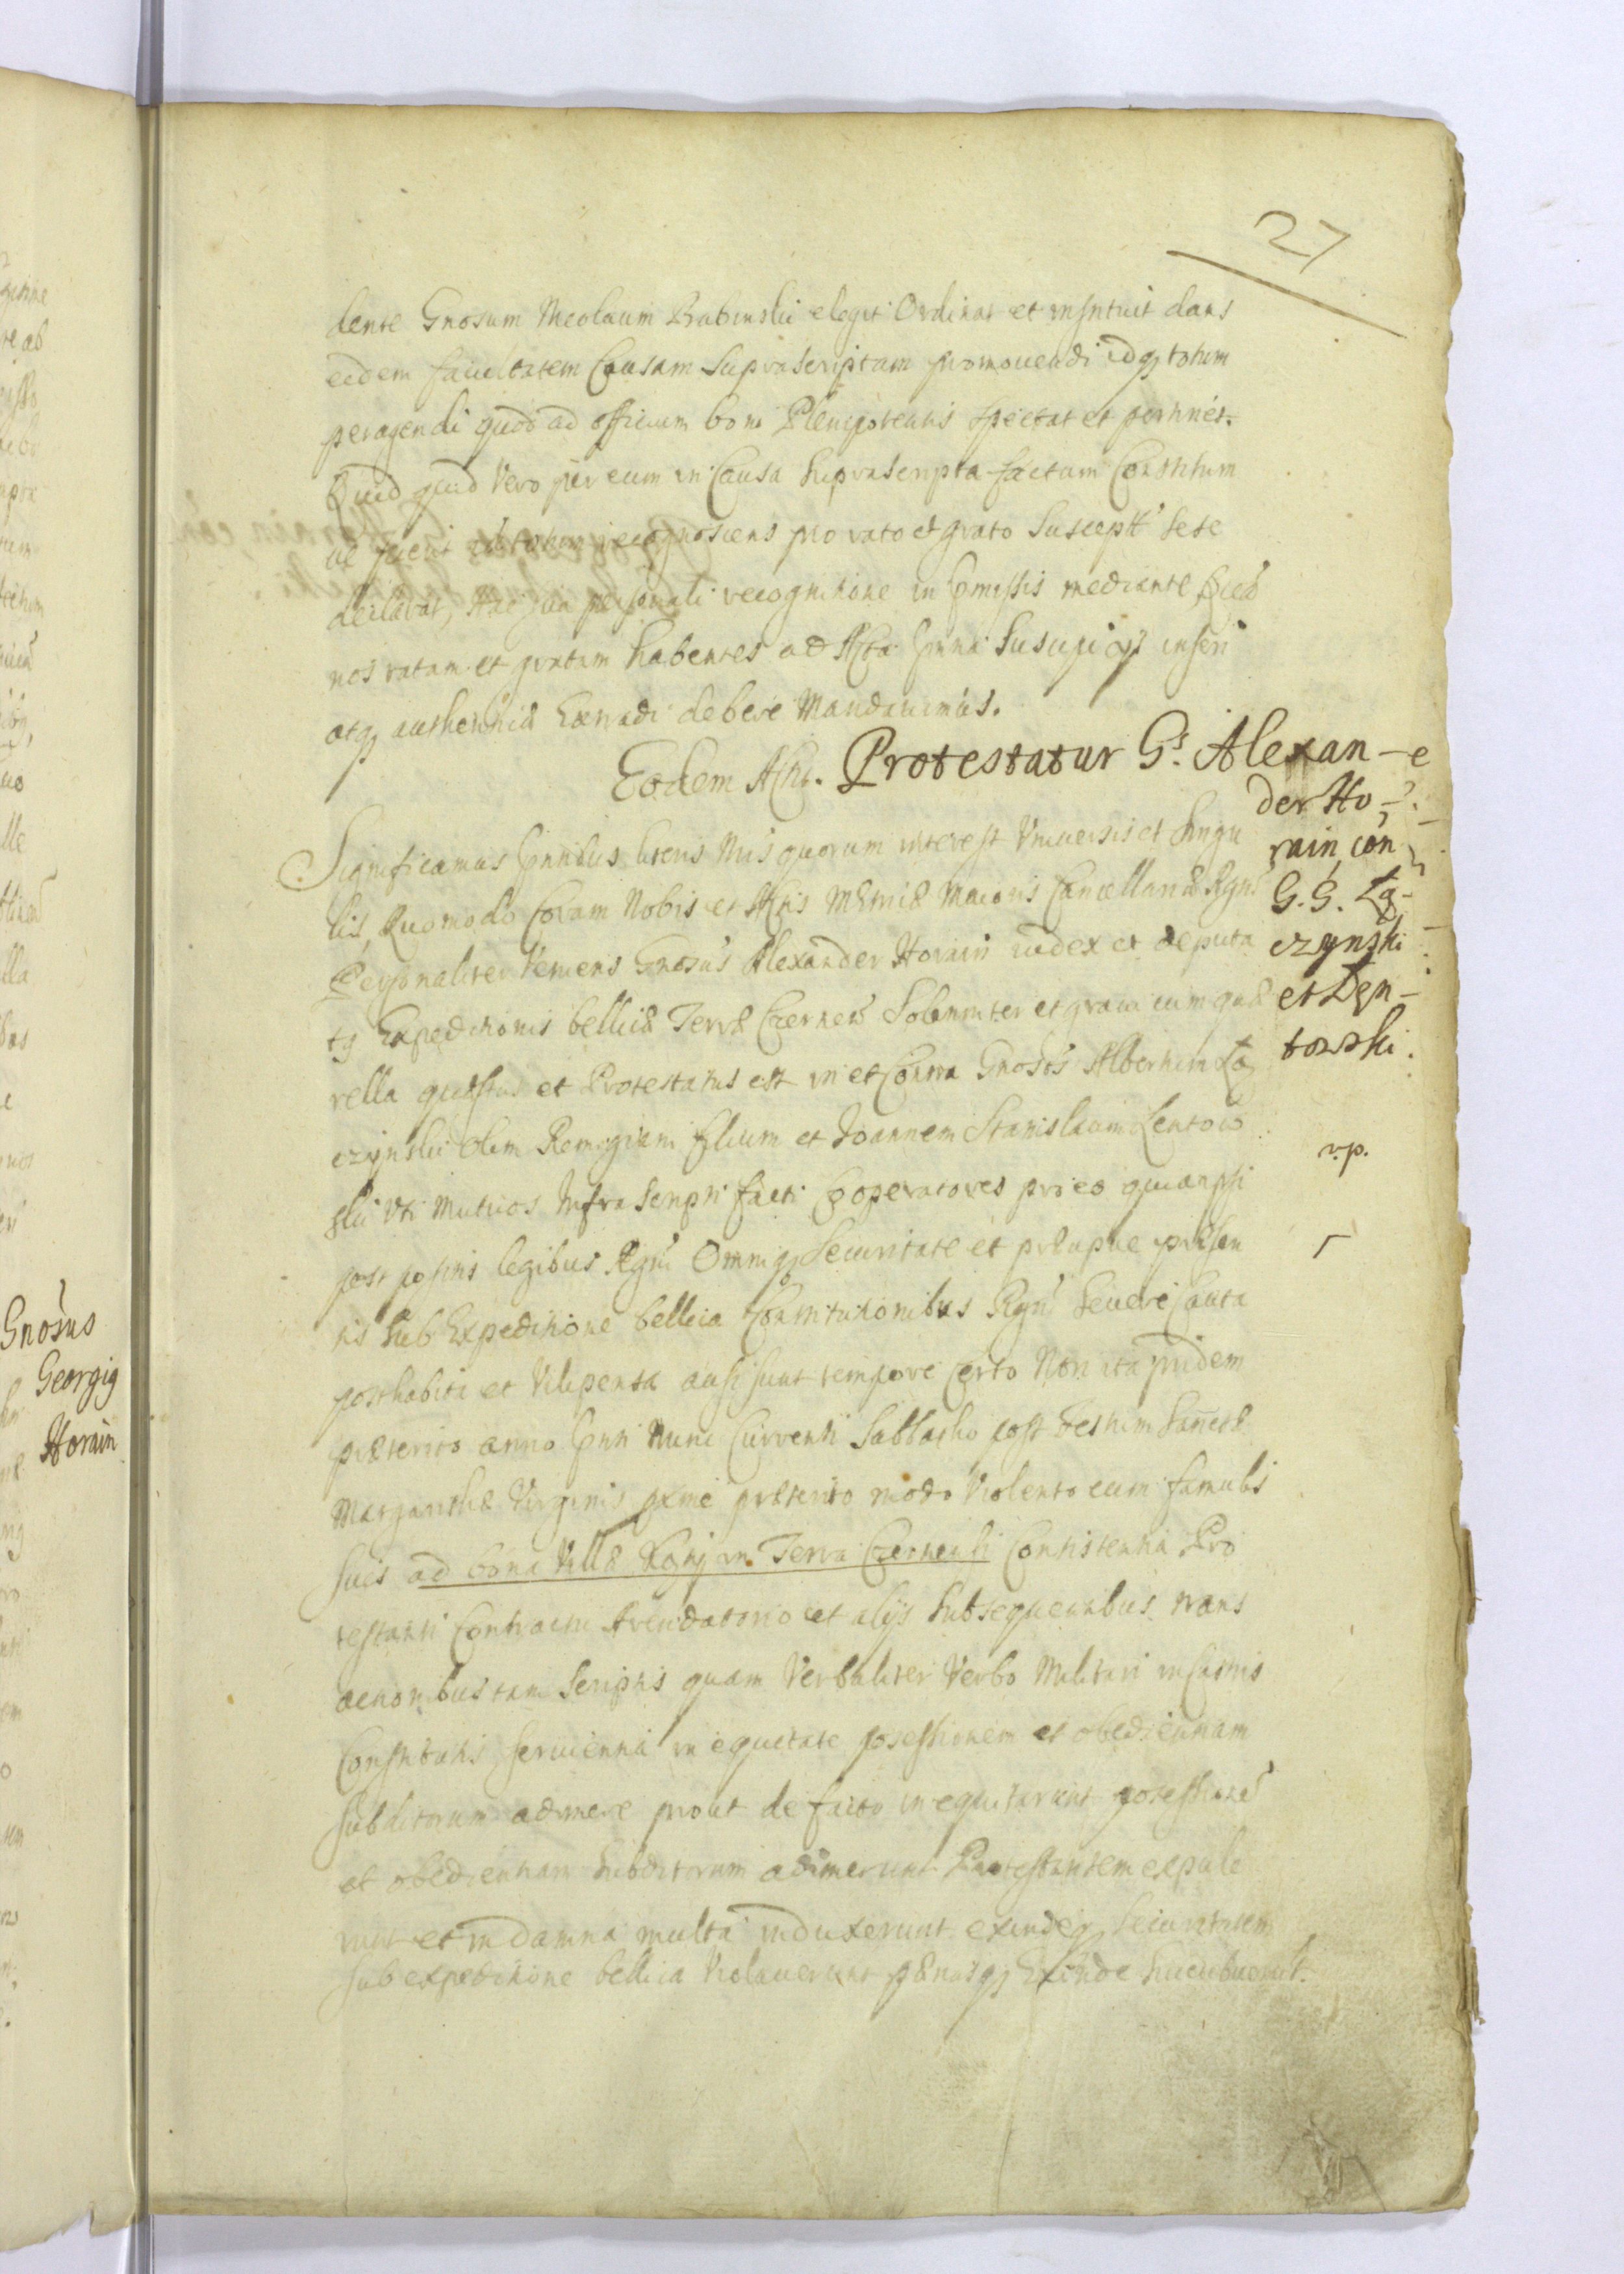 27
dente Gnosum Nicolaum Babinskii elegit Ordinat et instituit dans
eidem facultatem Causam Suprascriptam promouendi idq totum
peragendi quod ad officium boni Plenipotentis spectat et pertinet.
Quid quid Vero per eum in Causa suprascripta factum Constitum
ue fuerit id totum recognoscens pro rato et grato Suscept sese
declarat, Hac sua personali recognitione in pmissis mediante, Qua
nos ratam et gratam habentes ad Acta pntia Suscipi et inseri
atq authentice Extradi debere Mandauimus.
Eodem Actu. Protestatur Gs. Alexan-
der Ho-
rain con
G. G. Łą-
czynski
et Len-
towski.
Significamus pntibus literis Nris quorum interest Vniuersis et singu
lis, Quomodo Coram Nobis et Actis Metrices Maioris Cancellariæ Regni
Personaliter Veniens Gnosus Alexander Horain iudex et deputa
tg Expeditionis bellicæ Terræ Czernen Solenniter et graui cum quæ
rella questus et Protestatus est in et Contra Gnosos Albertum Łą
czynskii olim Remigiani filium et Ioannem Stanislaum Lentow
skii Vti mutuos Infra scripti facti Cooperatores pro eo quia ipsi
post positis legibus Regni Omniq Securitate et præcipue præsen
tis sub Expeditione bellica Constitutionibus Regni seuere Cauta
posthabita et Vilipensa ausi sunt tempore certo Non ita pridem
præterito anno pnti nunc Currenti Sabbatho post Festum Sanctæ
Margarethæ Virginis pxme præterito modo Violento cum famulis
suis ad bona Villæ in Terra Czernensi Consistentia Pro
testanti Contractu Arendatorio et alijs subsequentibus trans
actionibus tam scriptis quam Verbaliter Verbo Militari in Castris
Constitutis seruientia inequitare possessionem et obedientiam
subditorum adimere prout de facto inequitarunt possessione
et obedientiam subditorum adimerunt Protestantem expule
runt et in damna multa induxerunt exindeq securitatem
sub expeditione bellica Violauerunt pænasq Exinde succubuerunt.
v.p.
Gnosus
Georgig
Horain